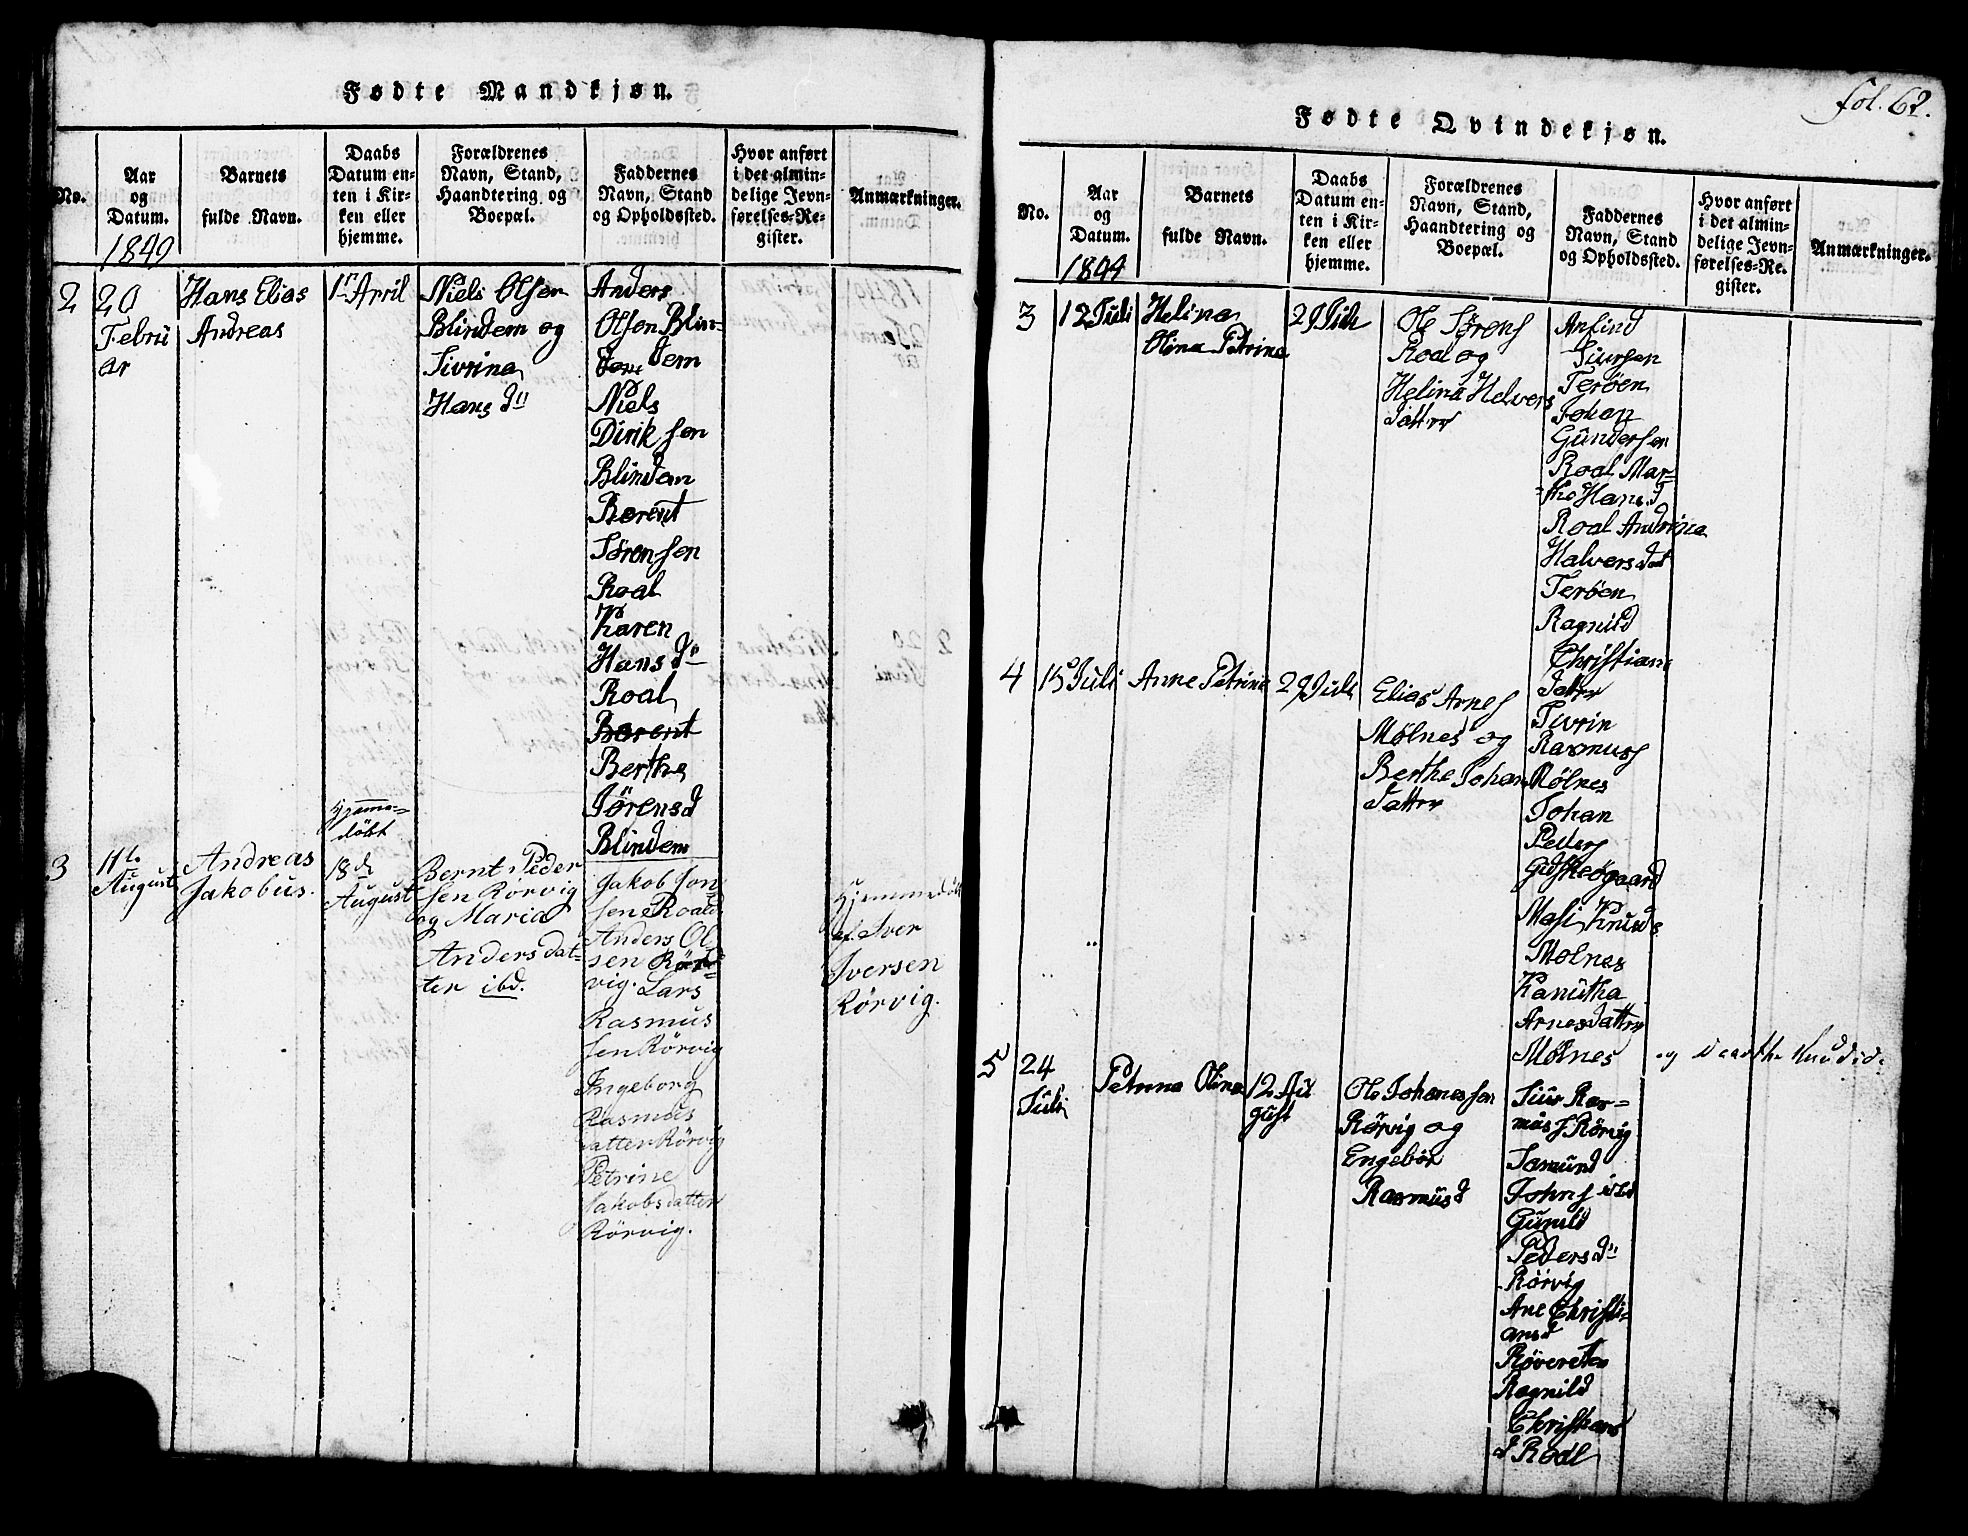 Fødte Mandkjøn.
No.
Aar
og
Datum.
1849
Barnets
fulde Navn.
Daabs
Datum en-
ten i Kir-
ken eller
hjemme.
Forældrenes
Navn, Stand,
Haandtering og
Boepæl.
Faddernes
Navn, Stand
og Opholdssted.
Hvor anført
i det almin-
delige Jevn-
førelses-Re-
gister.
Anmærkninger.
2
20
Febru
ar
Hans Elias
Andreas
1n April
Niels Olsen
Blindem og
Sivrina
Hans Dtr
Anders
Olsen Blin-
dem
Niels
Dirik sen
Blindem
Berent
Sørensen
Roal
Karen
Hans Dtr
Roal
Berent
Berthe
Sørensd
Blindem
3
11te
August
Andreas
Jakobus.
Hjemme-
döbt
18de
August
Bernt Peder
sen Rörvig
og Maria
Anders dat-
ter ibd.
Jakob Jon
sen Roald
Anders Ol
sen Rör-
vig. Lars
Rasmus
sen Rörvig
Ingeborg
Rasmus
datter Rörvig
Petrine
Jakobsdatter
Rörvig.
Hjemmedöbt
af Iver
Iversen
Rörvig.
fol. 62.
Fødte Qvindekjøn.
No.
Aar
og
Datum.
1844
Barnets
fulde Navn.
Daabs
Datum en-
ten i Kir-
ken eller
hjemme.
Forældrenes
Navn, Stand,
Haandtering og
Boepæl.
Faddernes
Navn, Stand
og Opholdssted.
Hvor anført
i det almin-
delige Jevn-
førelses-Re-
gister.
Anmærkninger.
3
12 Juli
Helina
Olina Petrina
29 Juli
Ole Sørens
Roal og
Helina Helvers
Datter
Anfind
Siursen
Terøen
Johan
Gundersen
Roal Mar-
the Hans d
Roal Andrina
Halvers dat
Terøen
Ragnild
Christians
Datter
4
15 Juli
Anne Petrine
29 Juli
Elias Arnes
Mølnes og
Berthe Johan
Datter
Sivrin
Rasmuss
Rølnes
Johan
Peders
Gidskeøgaard
Masi Knuds
Molnes
Kanutha
Arnesdatter
Mølnes
og Knudsd:
5
24
Juli
Petrina Olina
12 Au
gust
Ole Johanessen
Rørvig og
Engebör
Rasmusd
Siur Ras-
mus s Rörvig
Samund
Johns ibid
Gunild
Peders dtr
Rörvig
Ane Christi-
ansd
Røveretten
Ragnild
Christians
d Roal